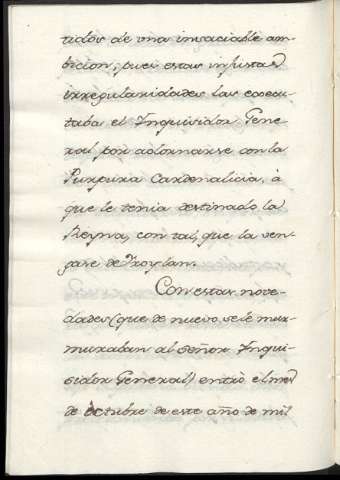 tidos de una insaciable am-
bicion; pues estas injustas
irregularidades las execu-
taba el Inquisidor Gene-
ral por adornarse con la
Purpura Cardenalicia, à
que le tenia destinado la
Reyna, con tal, que la ven-
gase de Froylan.
Con estas nove-
dades (que de nuevo se le mur-
muraban al Señor Inqui-
sidor General) entrò el mes
de Octubre de este año de mil